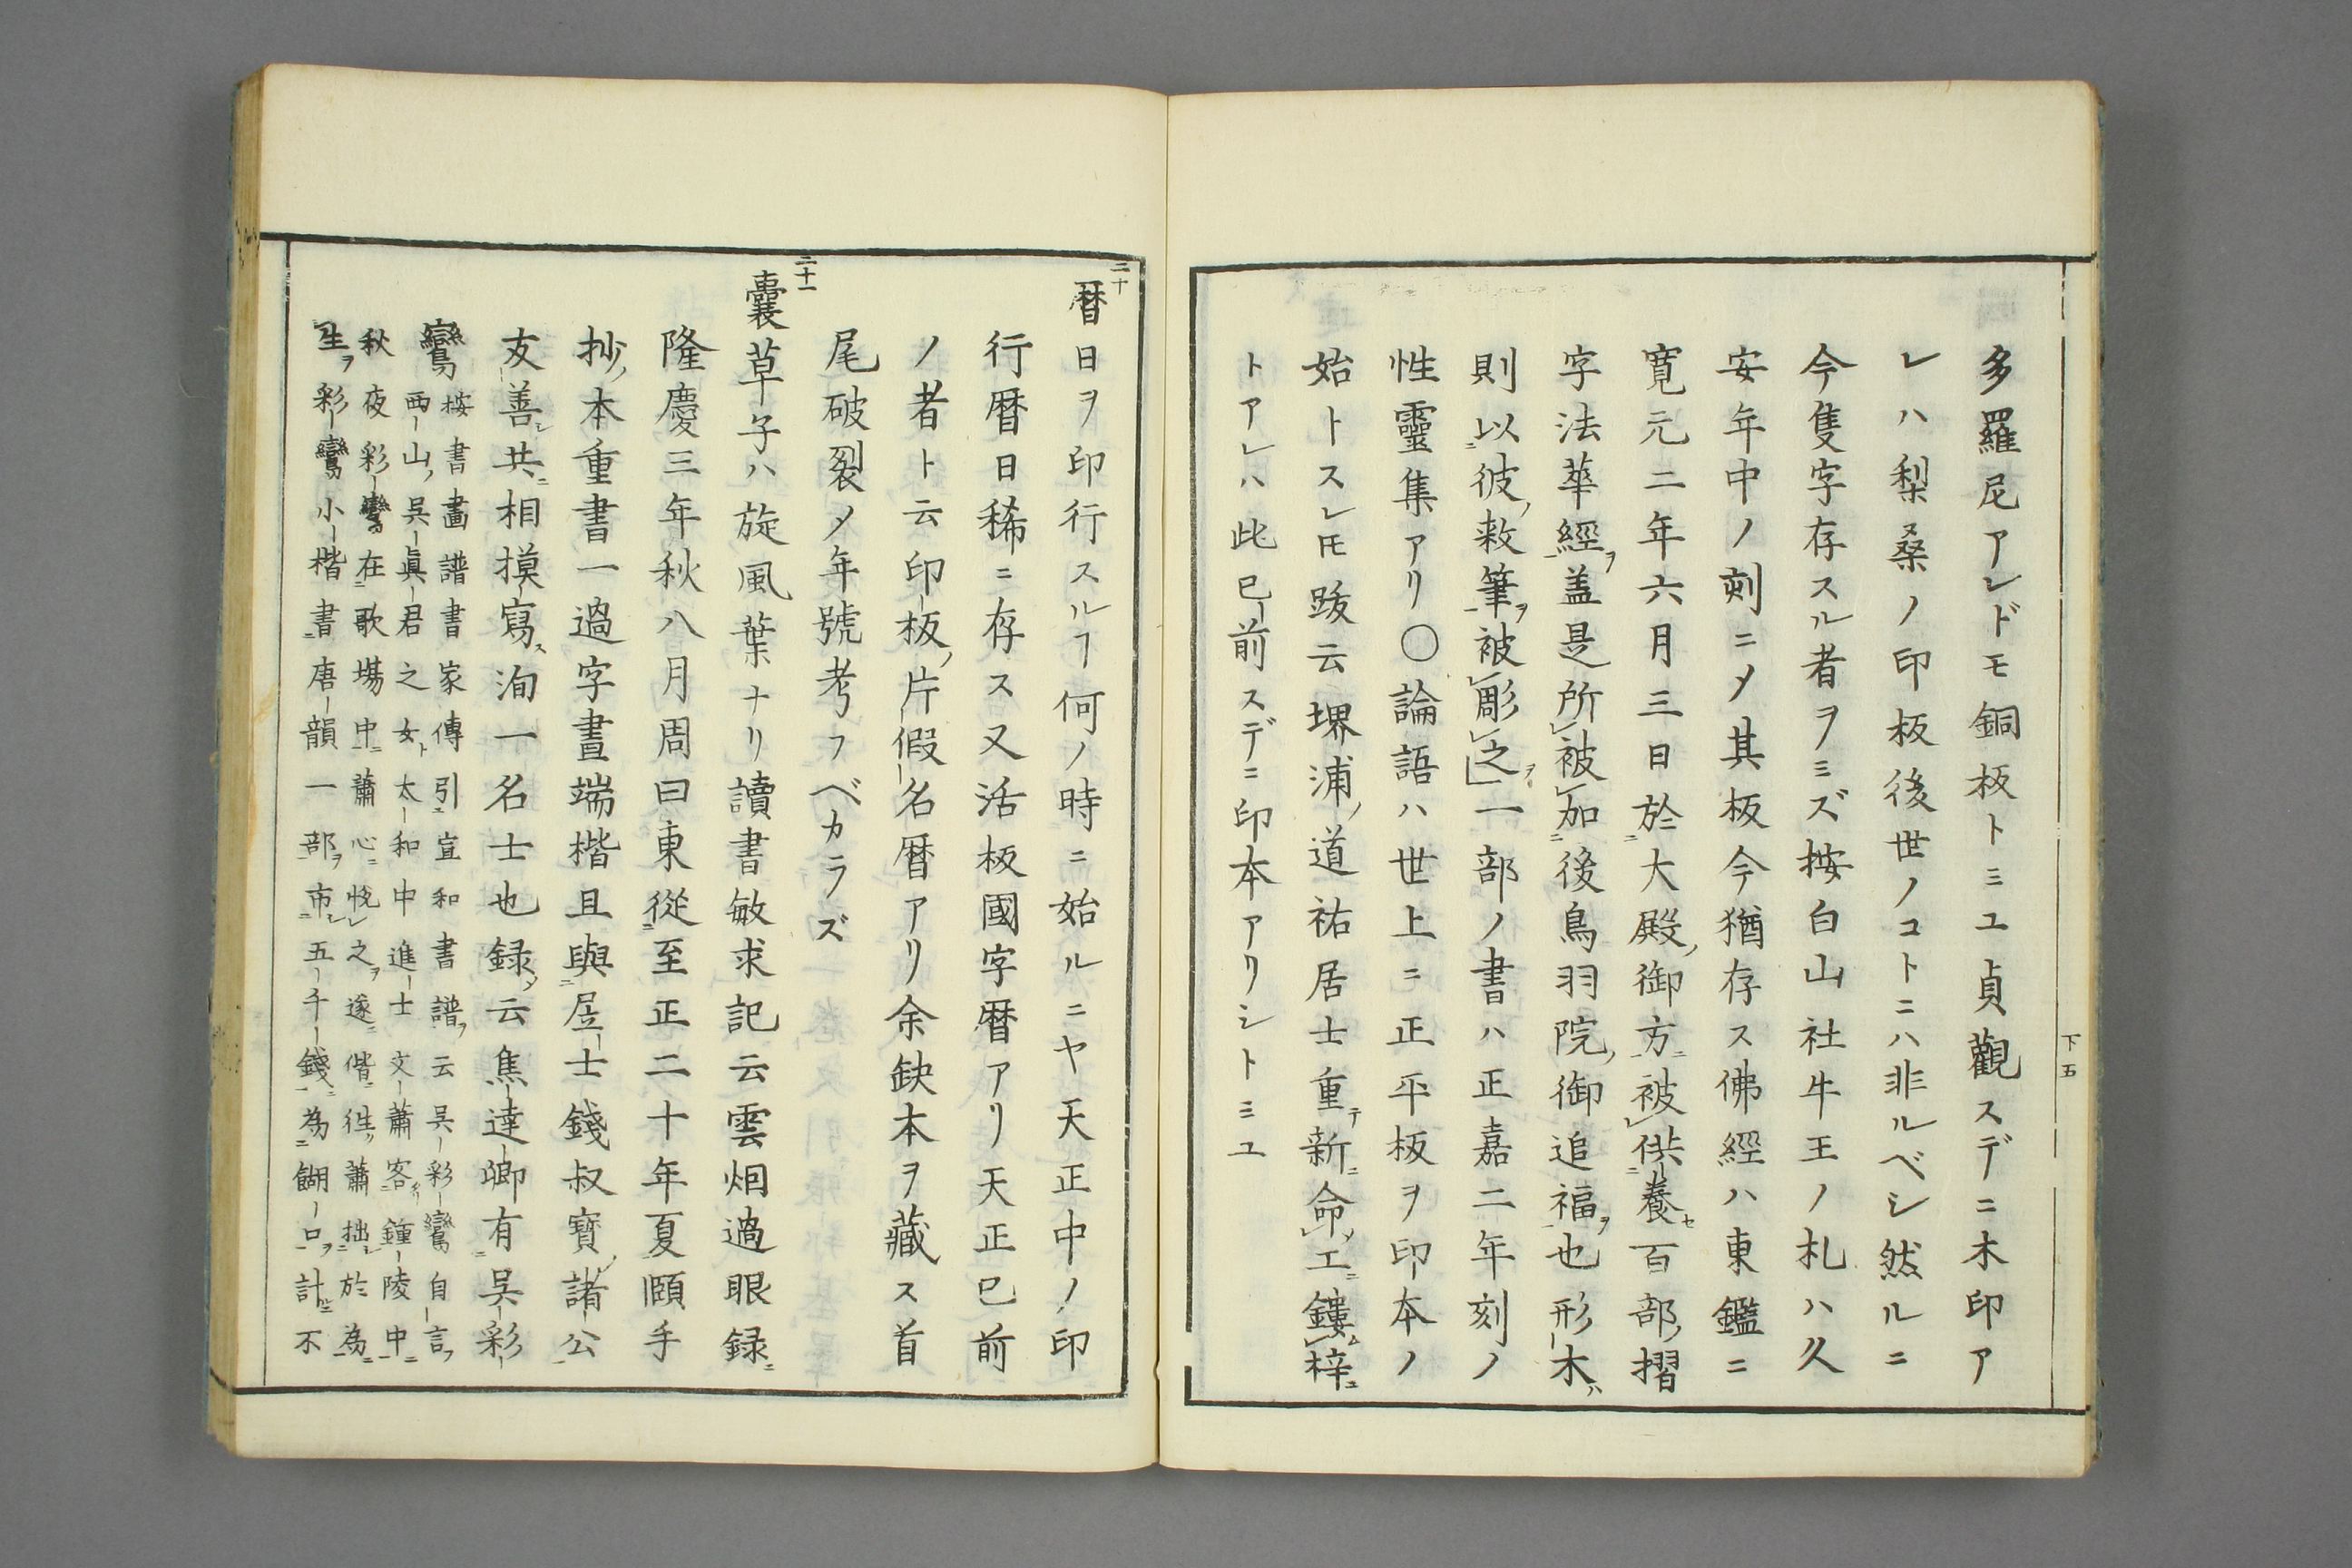 多羅尼アレドモ銅板トミユ貞觀スデニ木印ア
レハ梨桑ノ印板後世ノコトニハ非ルベシ然ルニ
今隻字存スル者ヲミズ按白山社牛王ノ札ハ久
安年中ノ刻ニメ其板今猶存ス佛經ハ東鑑ニ
寛元二年六月三日於大殿御方被供養百部摺
字法華經盖是所被加後鳥羽院御追福也形木
則以彼敕筆被彫之一部ノ書ハ正嘉二年刻ノ
性靈集アリ〇論語ハ世上ニ正平板ヲ印本ノ
始トスレ𪜈跋云堺浦道祐居士重新命工鏤梓
トアレハ此已前スデニ印本アリシトミユ
下五
二十
暦日ヲ印行スルヿ何ノ時ニ始ルニヤ天正中ノ印
行暦日稀ニ存ス又活板國字暦アリ天正已前
ノ者ト云印板片假名暦アリ余缺本ヲ藏ス首
尾破裂メ年號考フベカラズ
二十一
囊草子ハ旋風葉ナリ讀書敏求記云雲烟過眼録
隆慶三年秋八月周曰東從至正二十年夏頤手
抄本重書一過字畫端楷且與居士錢叔寶諸公
友善共相摸寫洵一名士也録云焦達卿有呉彩
鸞
按書畫譜書家傳引宣和書譜云呉彩鸞自言
西山呉真君之女太和中進士文蕭客鍾陵中
秋夜彩鸞在歌場中蕭心悅之遂偕徃蕭拙於為
生彩鸞小楷書唐韻一部市五千錢為餬口計不